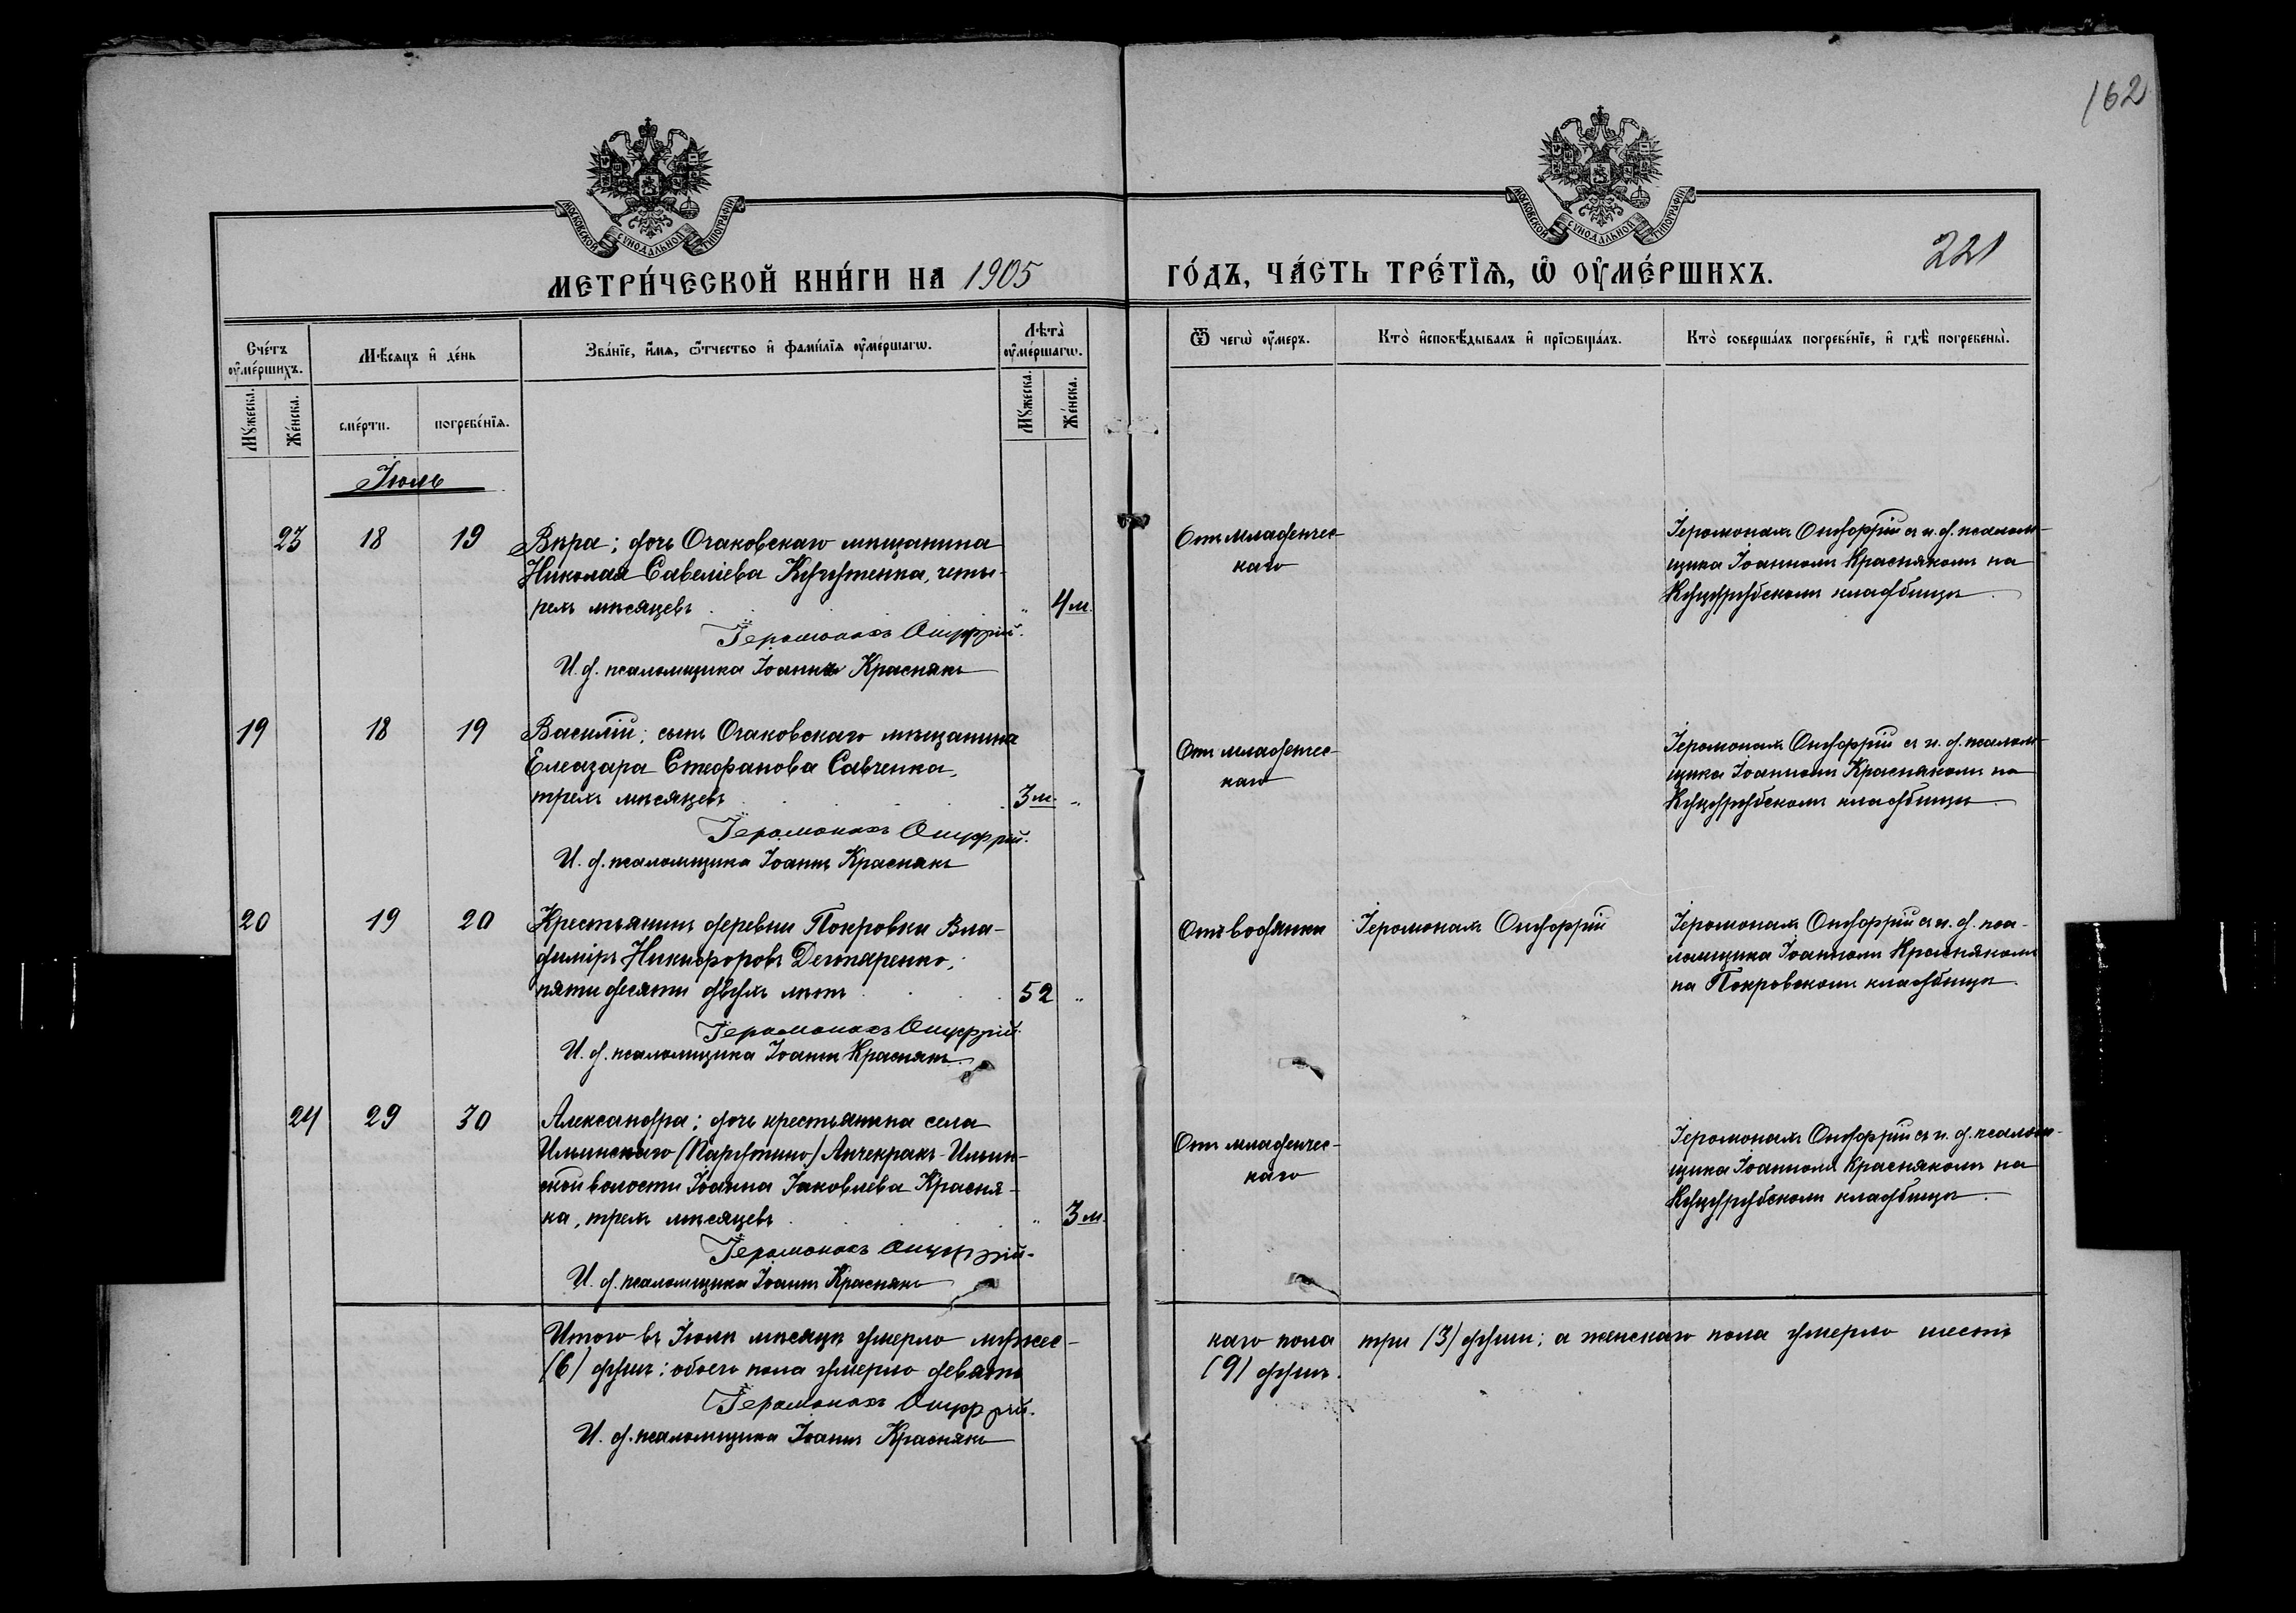 162
МОСКОВСКОЙ СѴНОДАЛЬНОЙ ТИПОГРАФІИ
МОСКОВСКОЙ СѴНОДАЛЬНОЙ ТИПОГРАФІИ
МЕТРИ́ЧЕСКОЙ КНИ́ГИ НА 1905
ГО́ДЪ, ЧА́СТЬ ТРЕ́ТЇѦ, Ѡ҆ ОУ҆МЕ́РШИХЪ.
221
Сче́тъ оу҆ме́ршихъ.
Мѣ́сяцъ и҆ де́нь
Зва́нїе, и҆́мѧ, ѻ҆́тчество и҆ фами́лїѧ оу҆ме́ршагѡ.
Лѣта̀ оу҆ме́ршагѡ.
Ѿ чегѡ̀ оу҆́меръ.
Кто̀ и҆сповѣ́дывалъ и҆ прїѡбща́лъ.
Кто̀ соверша́лъ погребе́нїе, и҆ гдѣ̀ погребены̀.
Мꙋ́жеска.
Же́нска.
сме́рти.
погребе́нїѧ.
Мꙋ́жеска.
Же́нска.
Іюль
23 18 19 Вѣра; дочь Очаковскаго мѣщанина
Николая Савеліева, четы-
рехъ мѣсяцевъ . " 4 м.
Іеромонахъ Онуфрій.
И. д. псаломщика Іоаннъ Краснякъ
Отъ младенчес-
каго
Іеромонахъ Онуфрій съ и. д. псалом-
щика Іоанномъ Краснякомъ на
Куцурубскомъ кладбищѣ.
19 18 19 Василій; сынъ Очаковскаго мѣщанина
Елеазара Стефанова Савченка,
трехъ мѣсяцевъ . . . . 3 м. "
Іеромонахъ Онуфрій.
И. д. псаломщика Іоаннъ Краснякъ
Отъ младенчес-
каго
Іеромонахъ Онуфрій съ и. д. псалом-
щика Іоанномъ Краснякомъ на
Куцурубскомъ кладбищѣ.
20 19 20 Крестьянинъ деревни Покровки Вла-
диміръ Никифоровъ Дегтаренко,
пятидесяти двухъ лѣтъ . . . 52 "
Іеромонахъ Онуфрій.
И. д. псаломщика Іоаннъ Краснякъ.
Отъ водянки
Іеромонахъ Онуфрій
Іеромонахъ Онуфрій съ и. д. пса-
ломщика Іоанномъ Краснякомъ
на Покровскомъ кладбищѣ.
24 29 30 Александра; дочь крестьянина села
Ильинскаго (Парутино) Анчекракъ-Ильин-
ской волости Іоанна Іаковлева Красня-
ка, трехъ мѣсяцевъ . . . " 3 м.
Іеромонахъ Онуфрій.
И. д. псаломщика Іоаннъ Краснякъ
Отъ младенчес-
каго
Іеромонахъ Онуфрій съ и. д. псалом-
щика Іоанномъ Краснякомъ на
Куцурубскомъ кладбищѣ.
Итого въ Іюлѣ мѣсяцѣ умерло мужес-
каго пола три (3) души; а женскаго пола умерло шесть
(6) душъ: обоего пола умерло девять
(9) душъ.
Іеромонахъ Онуфрій.
И. д. псаломщика Іоаннъ Краснякъ